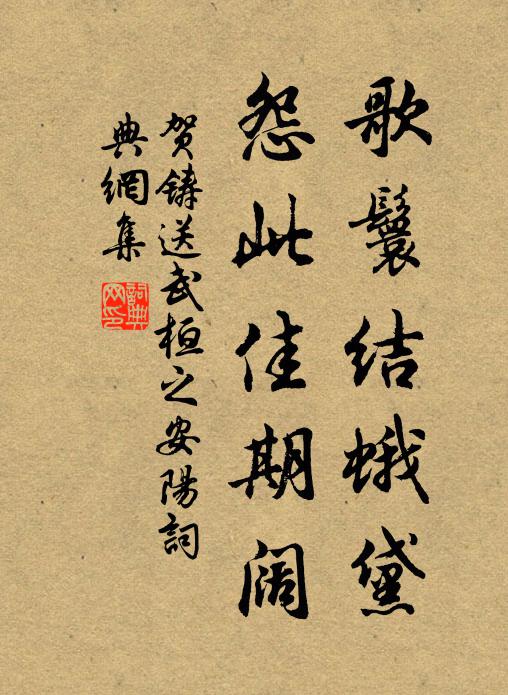 歌鬟结蛾黛
怨此佳期阔
贺鑄送武桓之安陽詞
典網集
詞典網印